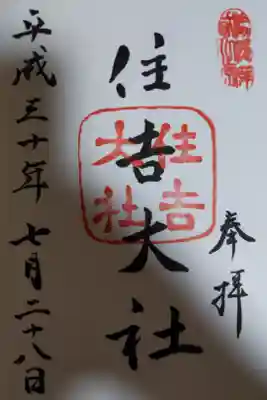 奉拝
住吉大社
住吉大社
平成三十年七月二十八日